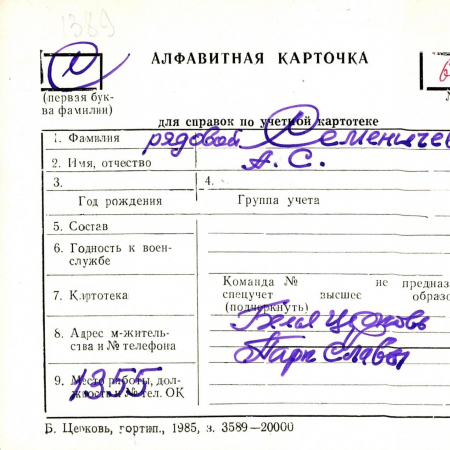 1389
АЛФАВИТНАЯ КАРТОЧКА
(первая бук-
ва фамилии)
для справок по учетной картотеке
1. Фамилия рядовой
2. Имя, отчество А. С.
3.
4.
Год рождения
Группа учета
5. Состав
6. Годность к воен-
службе
7. Картотека
Команда № не предназ
спецучет высшее образо
(подчеркнуть)
8. Адрес м-житель-
ства и № телефона
Белая Церковь
Парк Славы
9. Место работы, дол-
жность и № тел. ОК
1355
Б. Церковь, гортип., 1985, з. 3589—20000